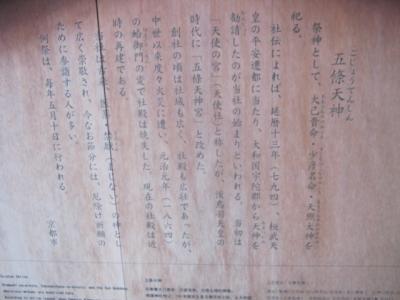 五條天神
ごじょうてんしん
祭神として、大己貴命・少彦名命・天照大神を
祀る。
社伝によれば、延暦十三年(七九四)、桓武天
皇の平安遷都に当たり、大和国宇陀郡から天神を
勧請したのが当社の始まりといわれる。当初は
「天使の宮」(天使社)と称したが、後鳥羽天皇の
時代に「五條天神宮」と改めた。
創社の頃は社域も広く、社殿も広壮であったが、
中世以来度々火災に遭い、元治元年(一八六四)
の蛤御門の変で社殿は焼失した。現在の社殿は近
時の再建である。
当社は古来、医薬・禁厭(まじない)の神とし
て広く崇敬され、今なお節分には、厄除け祈願の
ために参詣する人が多い。
例祭は、毎年五月十日に行われる。
京都市